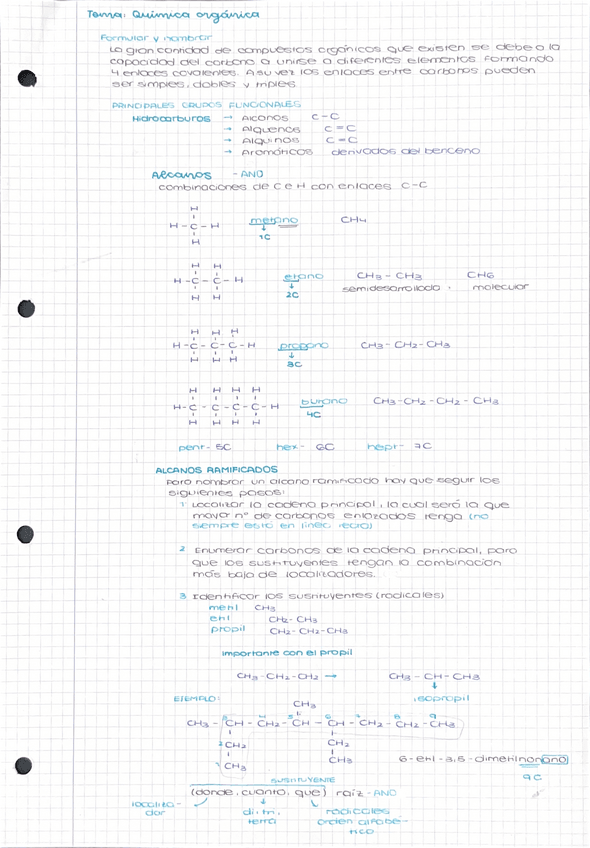 Tema: Química orgánica
Formular y nombrar
La gran cantidad de compuestos orgánicos que existen se debe a la
capacidad del carbono a unirse a diferentes elementos formando
4 enlaces covalentes. A su vez los enlaces entre carbonos pueden
ser simples, dobles y triples.
PRINCIPALES GRUPOS FUNCIONALES
Hidrocarburos → Alcanos C-C
→ Alquenos C=C
→ Alquinos C≡C
→ Aromáticos derivados del benceno
Alcanos -ANO
combinaciones de C e H con enlaces C-C
H
H-C-H metano CH4
H 1C
H H
H-C-C-H etano CH3-CH3 CH6
H H 2C semidesarrollada. molecular
H H H
H-C-C-C-H propano CH3-CH2-CH3
H H H 3C
H H H H
H-C-C-C-C-H butano CH3-CH2-CH2-CH3
H H H H 4C
pent- 5C hex- 6C hept- 7C
ALCANOS RAMIFICADOS
para nombrar un alcano ramificado hay que seguir los
siguientes pasos:
1 Localizar la cadena principal, la cual será la que
mayor nº de carbonos enlazados tenga (no
siempre está en línea recta)
2 Enumerar carbonos de la cadena principal, para
que los sustituyentes tengan la combinación
más baja de localizadores.
3 Identificar los sustituyentes (radicales)
metil CH3
etil CH2-CH3
propil CH2-CH2-CH3
Importante con el propil
CH3-CH2-CH2 → CH3-CH-CH3
isopropil
EJEMPLO:
CH3
3 4 5 6 7 8 9
CH3-CH-CH2-CH-CH-CH2-CH2-CH3
2 CH2 CH2
1 CH3 CH3 6-etil-3,5-dimetilnonano
9C
SUSTITUYENTE
(donde, cuanto, que) raíz-ANO
localiza- di, tri, radicales
dor tetra orden alfabé-
tico